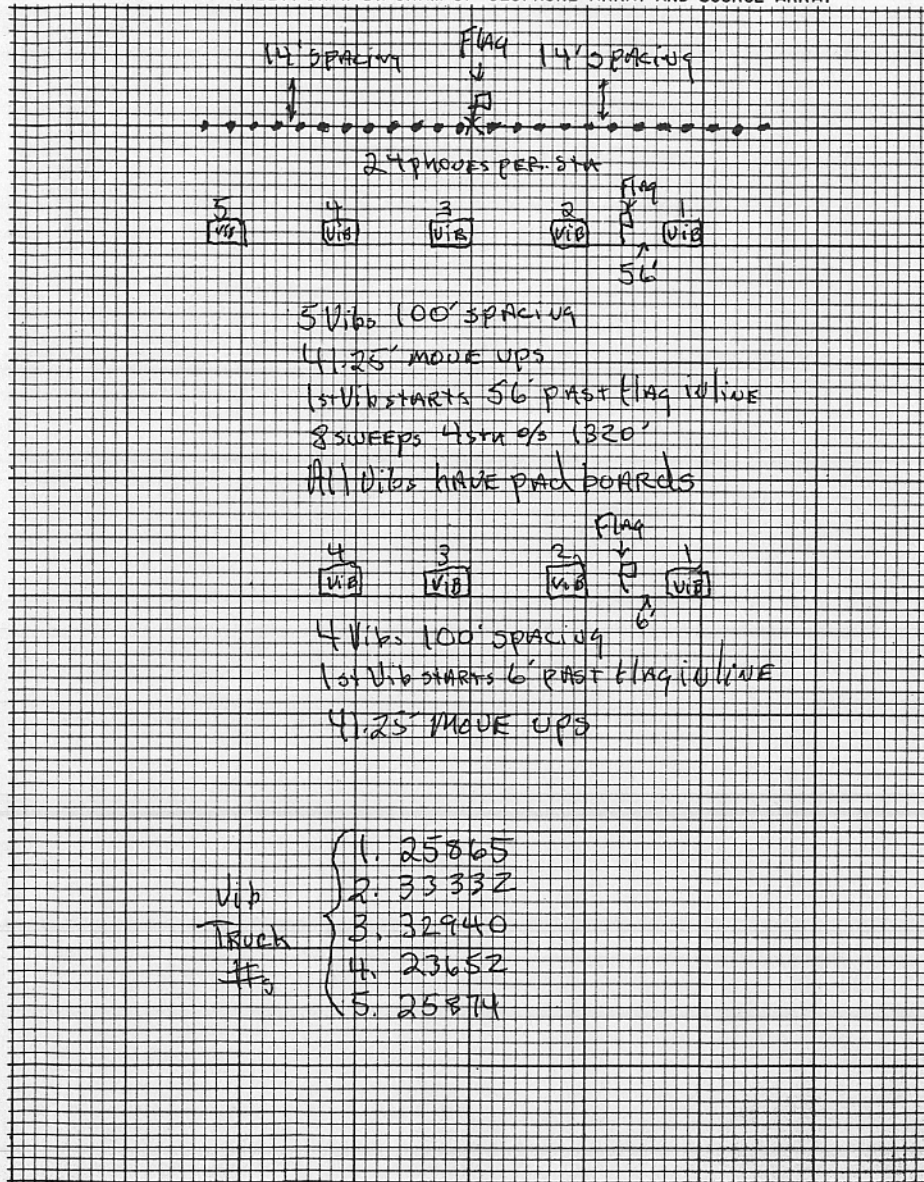 GEOPHONE ARRAY AND SOURCE ARRAY
14' SPACING FLAG 14' SPACING
24 PHONES PER. STA
Flag
5 4 3 2 1
ViB ViB ViB ViB ViB
56'
5 Vibs 100' SPACING
41.25' MOVE UPS
1st Vib STARTS 56' PAST flag inLINE
8 SWEEPS 4 STA o/s 1320'
All Vibs HAVE PAd BOARds
FLAG
4 3 2 1
ViB ViB ViB ViB
6'
4 Vibs 100' SPACING
1st Vib STARTS 6' PAST flag inLINE
41.25' MOVE UPS
1. 25865
Vib 2. 33332
TRUCK 3. 32940
#s 4. 23652
5. 25874